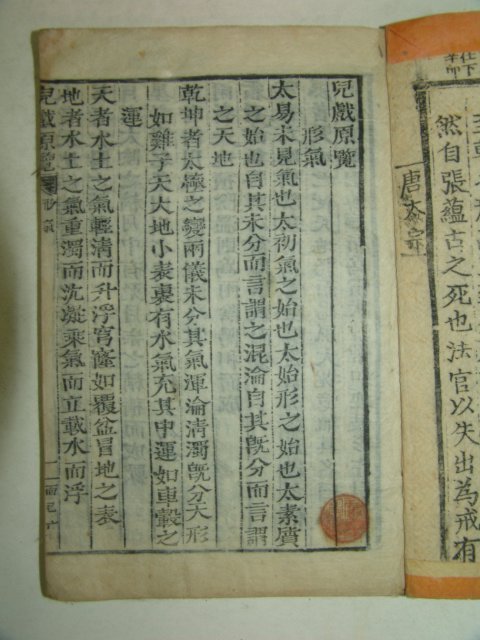 兒戲原覽
形氣
太易未見氣也太初氣之始也太始形之始也太素質
之始也自其未分而言謂之混淪自其旣分而言謂
之天地
乾坤者太極之變兩儀未分其氣渾淪清濁旣分天形
如雞子天大地小表裏有水氣充其中運如車轂之
運
天者水土之氣輕清而升浮穹隆如覆盆冒地之表
地者水土之氣重濁而沉凝乘氣而立載水而浮
兒戲原覽
然自張蘊古之死也法官以失出為戒有
唐太宗